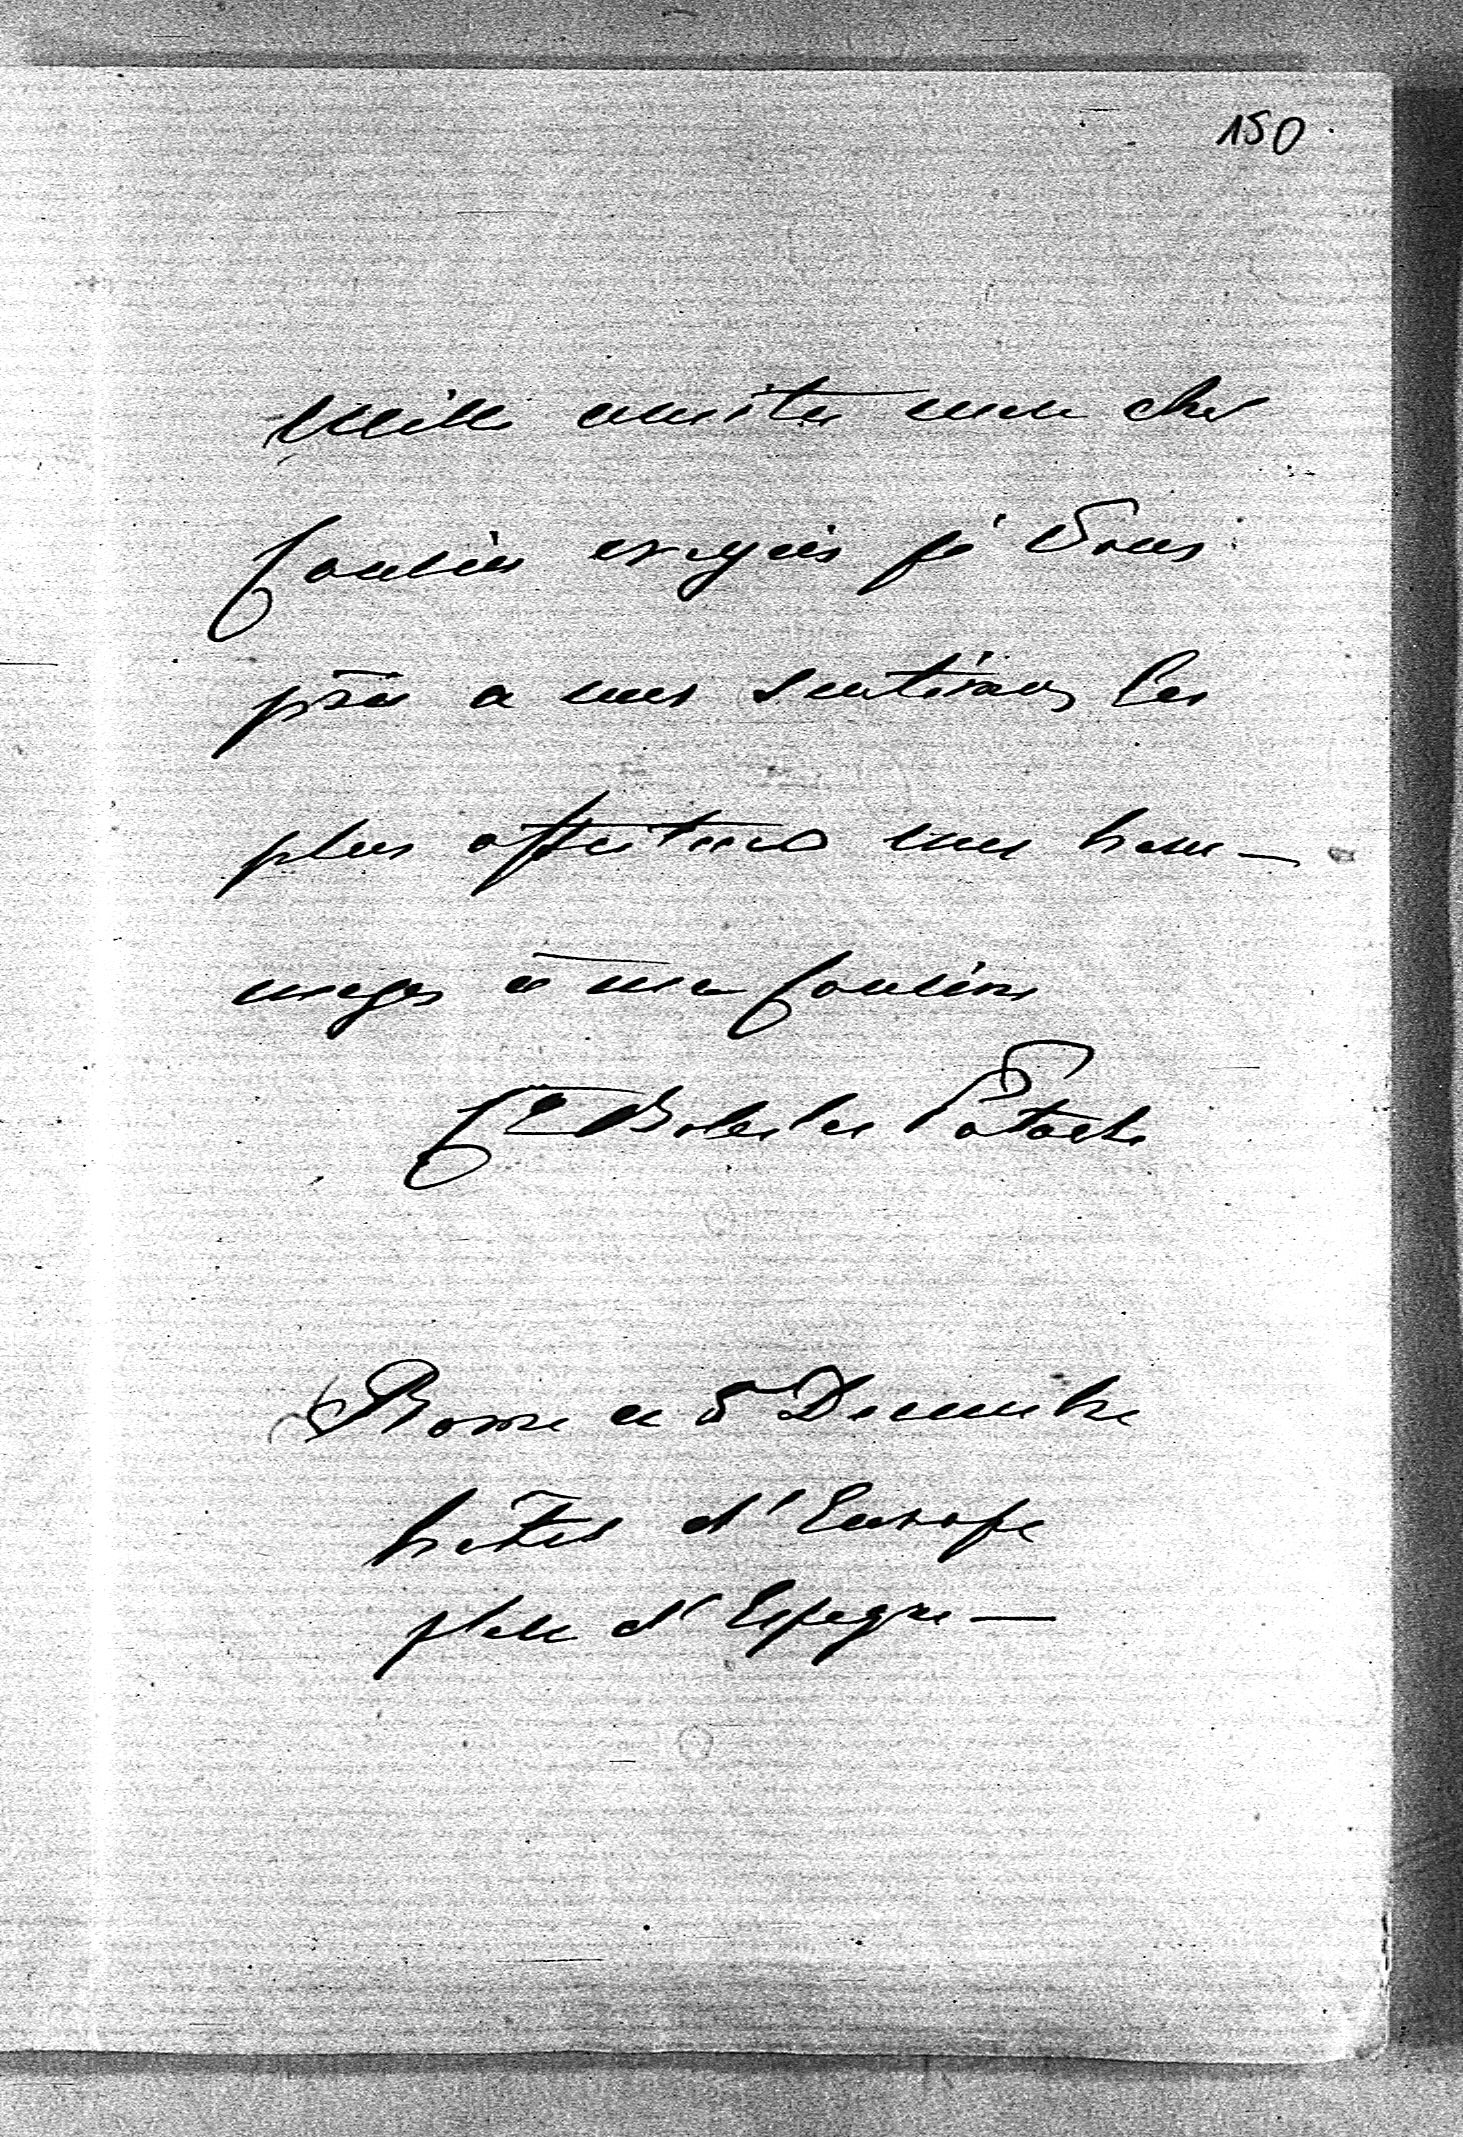 150
Mille amities mon cher
Cousin croyés je Vous
prie a mes sentimens les
plus affectueux mes hom-
mages à ma Cousine
Cte Boleslas Potocki
Rome ce 5 Decembre
hôtel d'Europe
place d'Espagne —